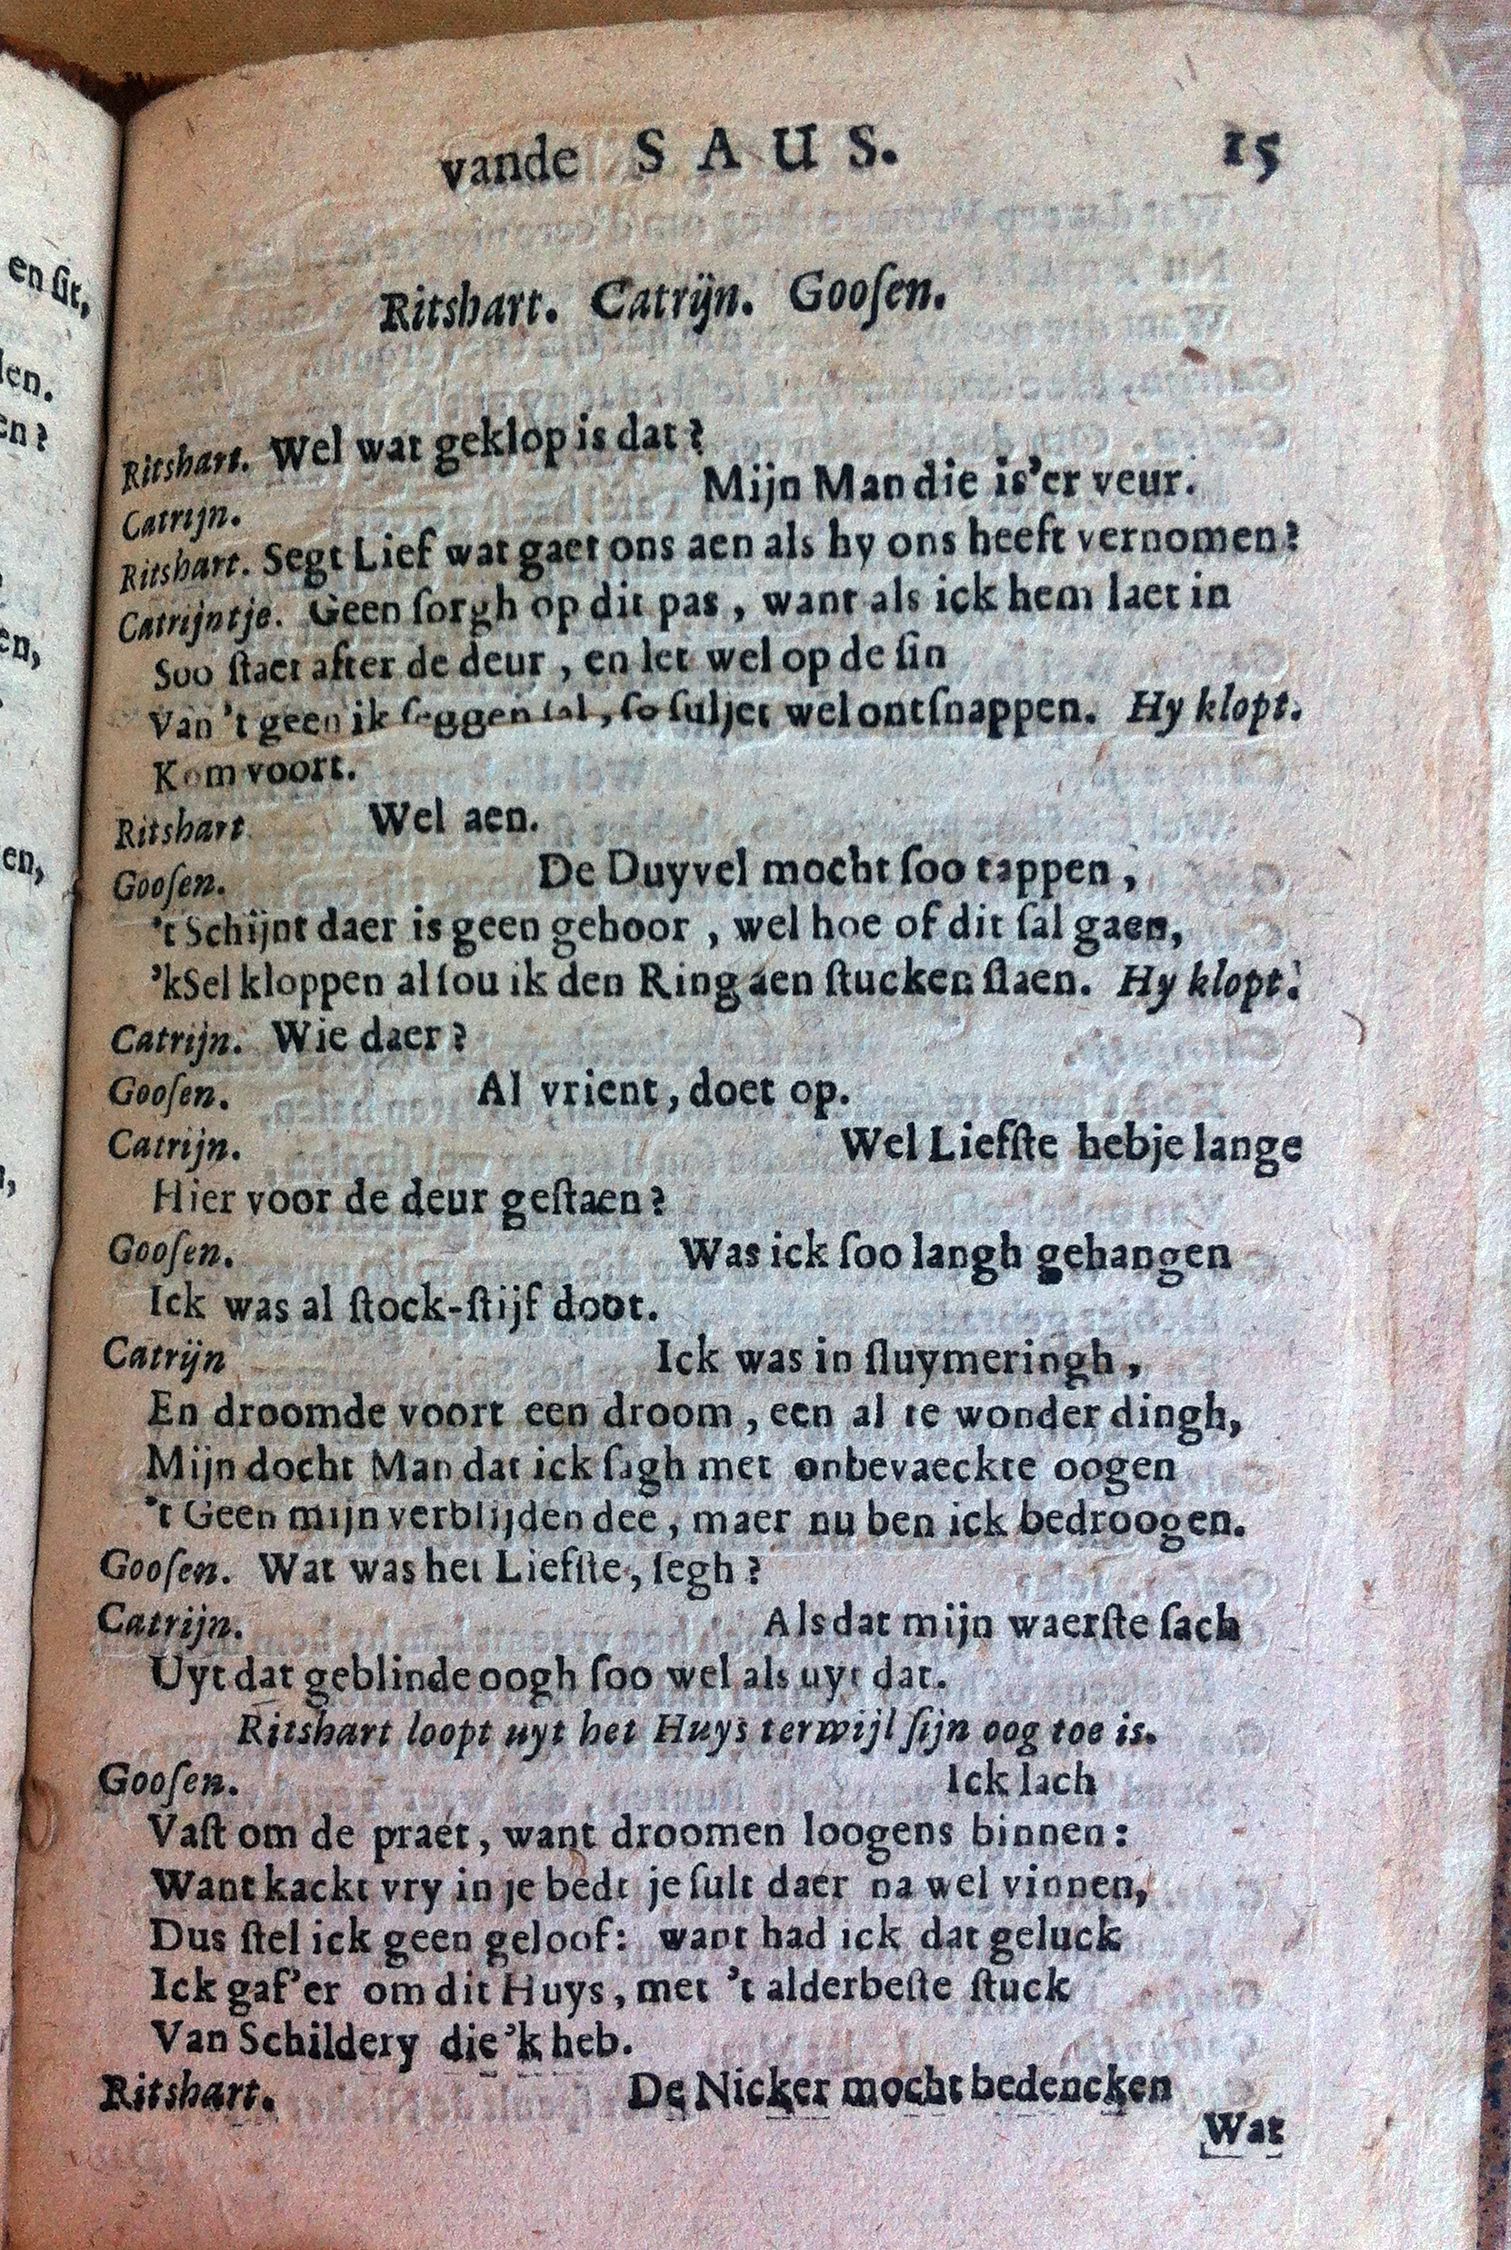 vande SAUS. 15
Ritshart. Catrijn. Gooſen.
Ritshart. Wel wat geklop is dat?
Catrijn. Mijn Man die is'er veur.
Ritshart. Segt Lief wat gaet ons aen als hy ons heeft vernomen?
Catrijntje. Geen ſorgh op dit pas, want als ick hem laet in
Soo ſtaet after de deur, en let wel op de ſin
Van 't geen ik ſeggen ſal, ſo ſuljet wel ontſnappen. Hy klopt.
Kom voort.
Ritshart. Wel aen.
Gooſen. De Duyvel mocht ſoo tappen,
't Schijnt daer is geen gehoor, wel hoe of dit ſal gaen,
'k Sel kloppen al ſou ik den Ring aen ſtucken ſlaen. Hy klopt.
Catrijn. Wie daer?
Gooſen. Al vrient, doet op.
Catrijn. Wel Liefſte hebje lange
Hier voor de deur geſtaen?
Gooſen. Was ick ſoo langh gehangen
Ick was al ſtock-ſtijf doot.
Catrijn Ick was in ſluymeringh,
En droomde voort een droom, een al te wonder dingh,
Mijn docht Man dat ick ſagh met onbevaeckte oogen
't Geen mijn verblijden dee, maer nu ben ick bedroogen.
Gooſen. Wat was het Liefſte, ſegh?
Catrijn. Als dat mijn waerſte ſach
Uyt dat geblinde oogh ſoo wel als uyt dat.
Ritshart loopt uyt het Huys terwijl ſijn oog toe is.
Gooſen. Ick lach
Vaſt om de praet, want droomen loogens binnen:
Want kackt vry in je bedt je ſult daer na wel vinnen,
Dus ſtel ick geen geloof: want had ick dat geluck
Ick gaf'er om dit Huys, met 't alderbeſte ſtuck
Van Schildery die 'k heb.
Ritshart. De Nicker mocht bedencken
Wat
en ſit,
en?
en,